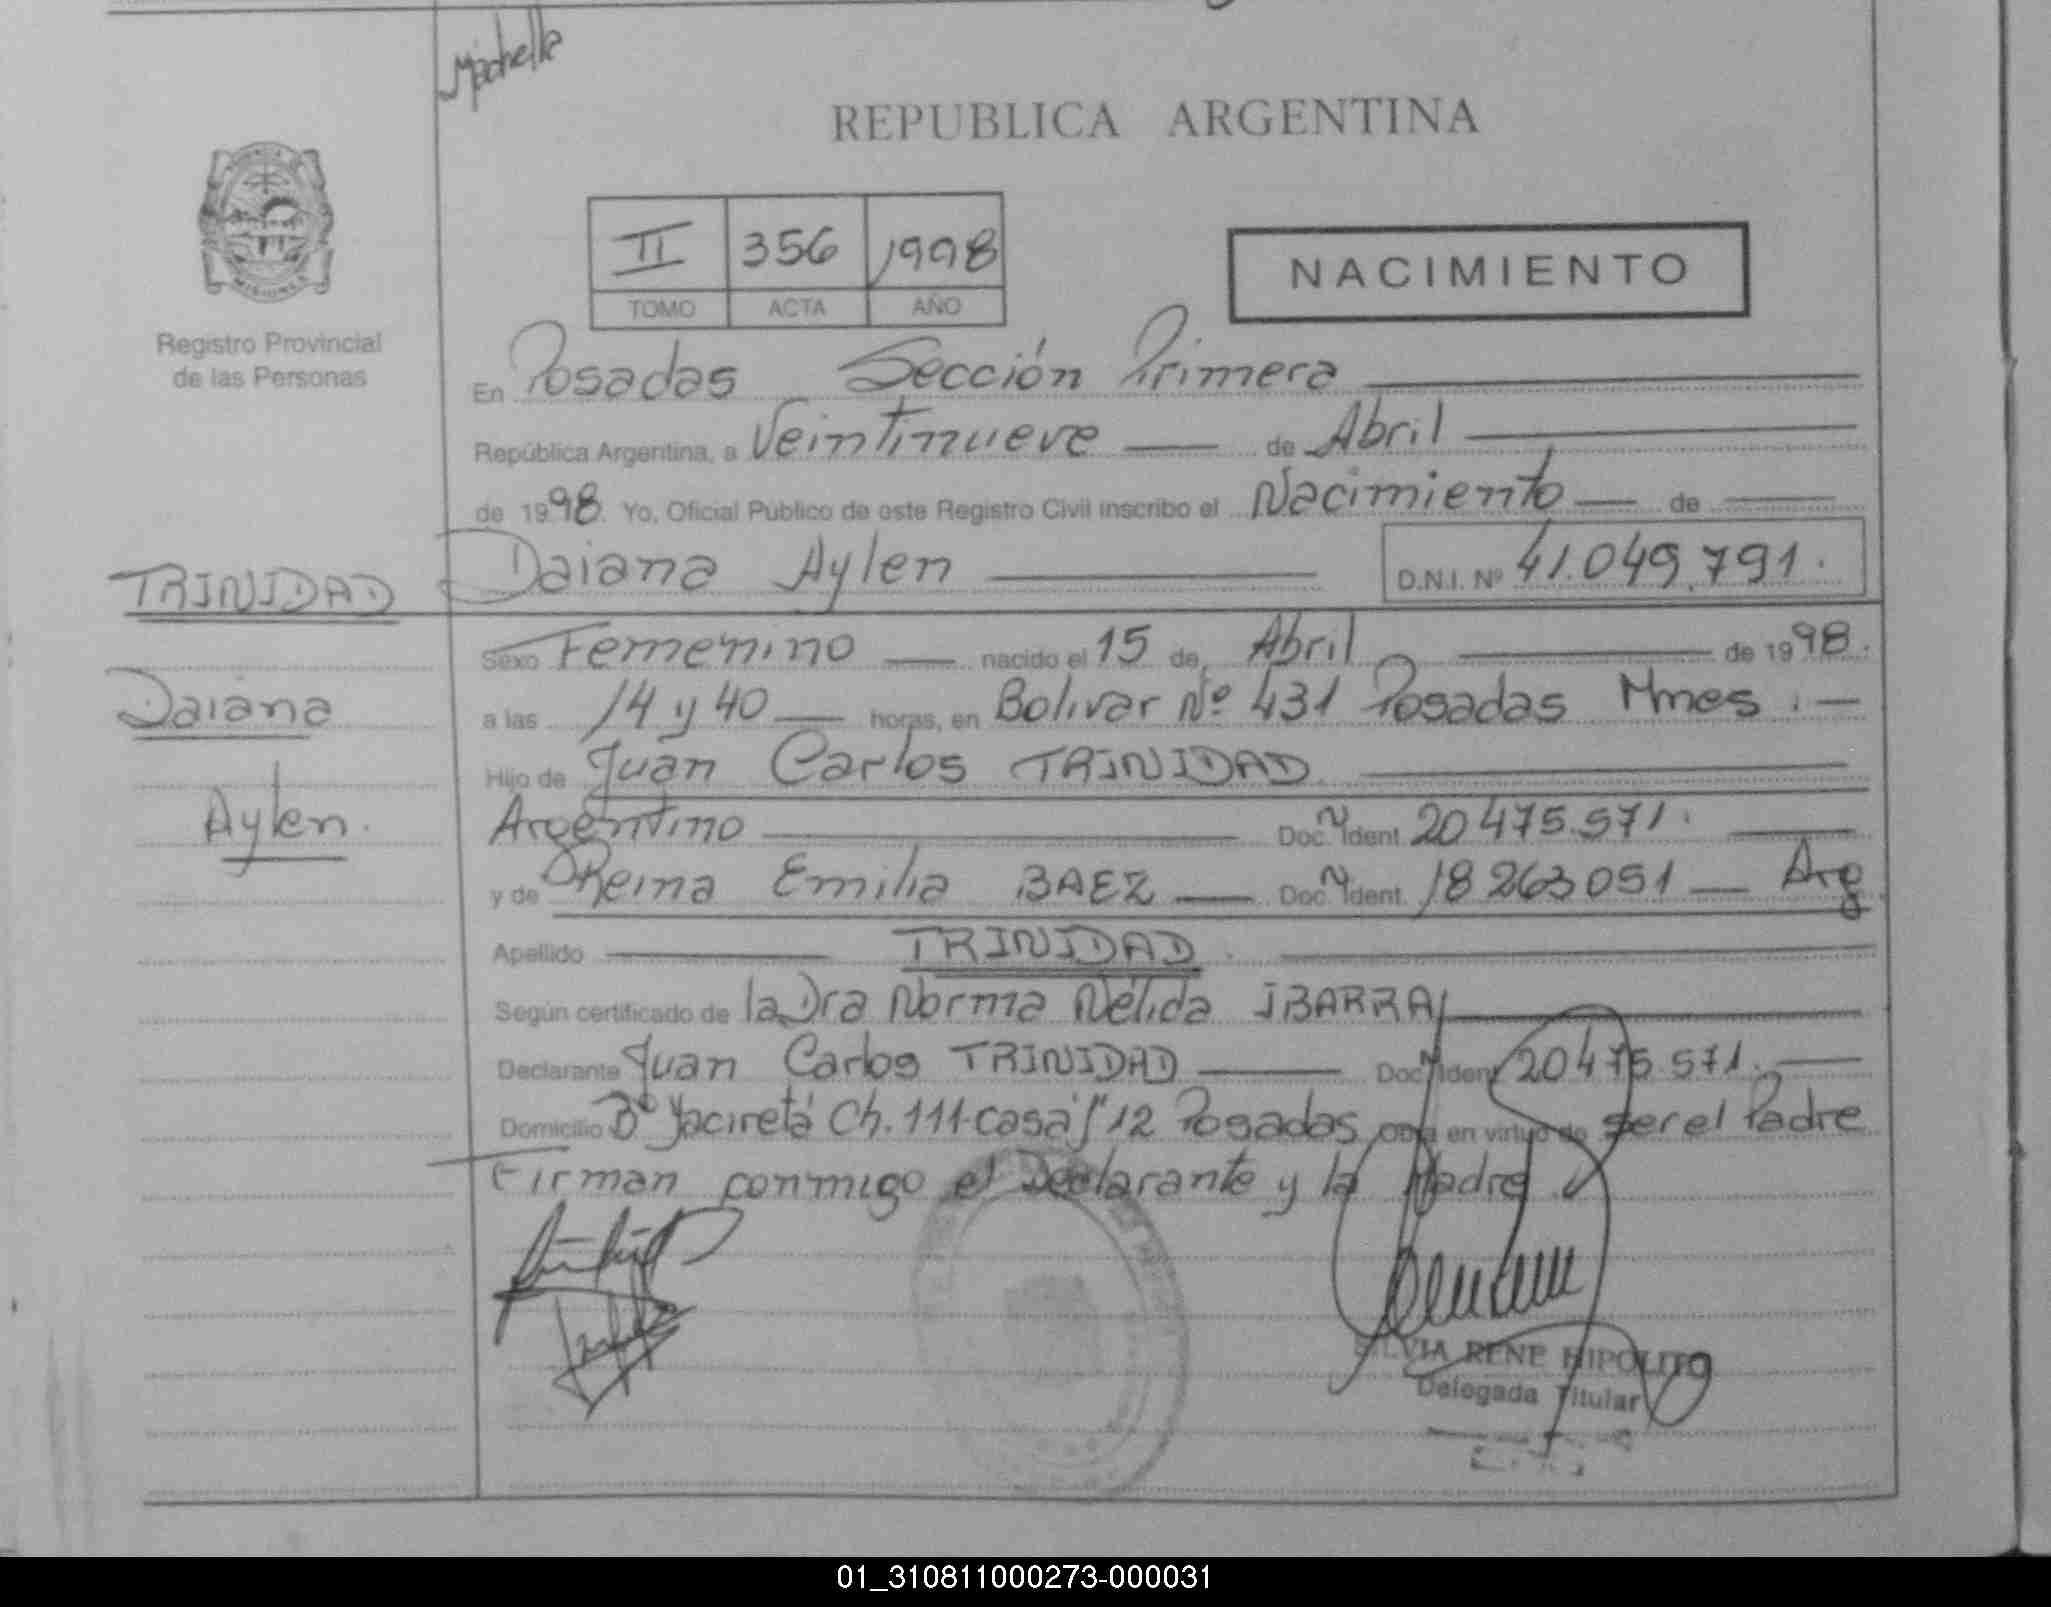 Machella
REPUBLICA ARGENTINA
MISIONES
II 356 1998
TOMO ACTA AÑO
NACIMIENTO
Registro Provincial
de las Personas
En Posadas Sección Primera
República Argentina, a Veintinueve de Abril
de 1998. Yo, Oficial Público de este Registro Civil inscribo el Nacimiento de
Daiana Aylen D.N.I. Nº 41.049.791.
TRINIDAD
Daiana
Aylen.
Sexo Femenino nacido el 15 de Abril de 1998.
a las 14 y 40 horas, en Bolivar Nº 431 Posadas Mnes.
Hijo de Juan Carlos TRINIDAD
Argentino Doc. N Ident. 20475.571.
y de Reina Emilia BAEZ Doc. N Ident. 18263051 Arg
Apellido TRINIDAD
Según certificado de la Dra Norma Nélida IBARRA
Declarante Juan Carlos TRINIDAD Doc. N Ident 20475.571.
Domicilio Bº Yaciretá Ch. 111-casa 12 Posadas, en virtud de ser el Padre
Firman conmigo el Declarante y la Madre
SILVIA RENE HIPOLITO
Delegada Titular
01_310811000273-000031